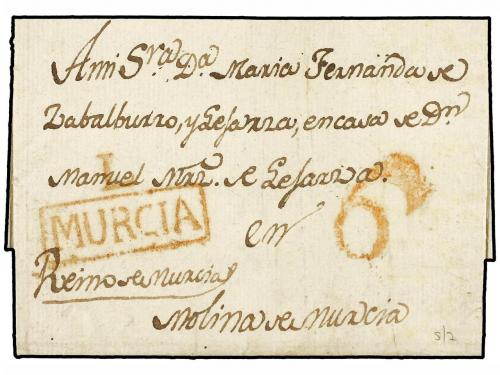 A mi S.ra D.a Maria Fernanda de
Zabalburro, y Lesarra, en casa de D.n
Manuel Mrz. de Lesarra.
I
MURCIA
en
6
Reino de Murcia
Molina de Murcia
S/2